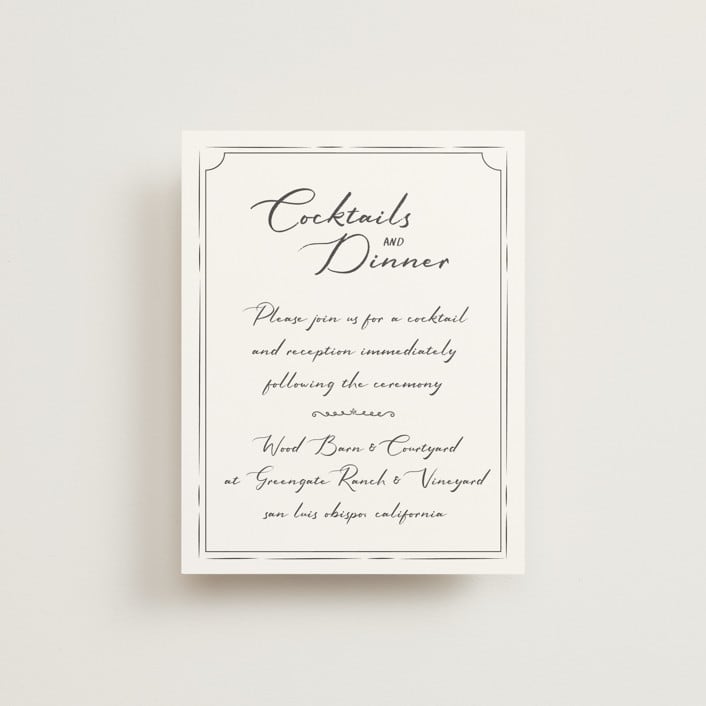 Cocktails
AND
Dinner
Please join us for a cocktail
and reception immediately
following the ceremony
Wood Barn & Courtyard
at Greengate Ranch & Vineyard
san luis obispo, california